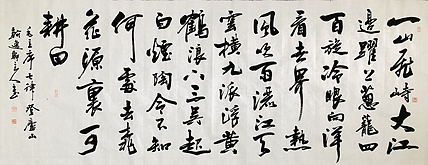 一山飛峙大江
邊躍上蔥蘢四
百旋冷眼向洋
看世界熱
風吹雨灑江天
雲橫九派浮黃
鶴浪下三吳起
白煙陶令不知
何處去桃
花源裏可
耕田
毛主席七律登廬山